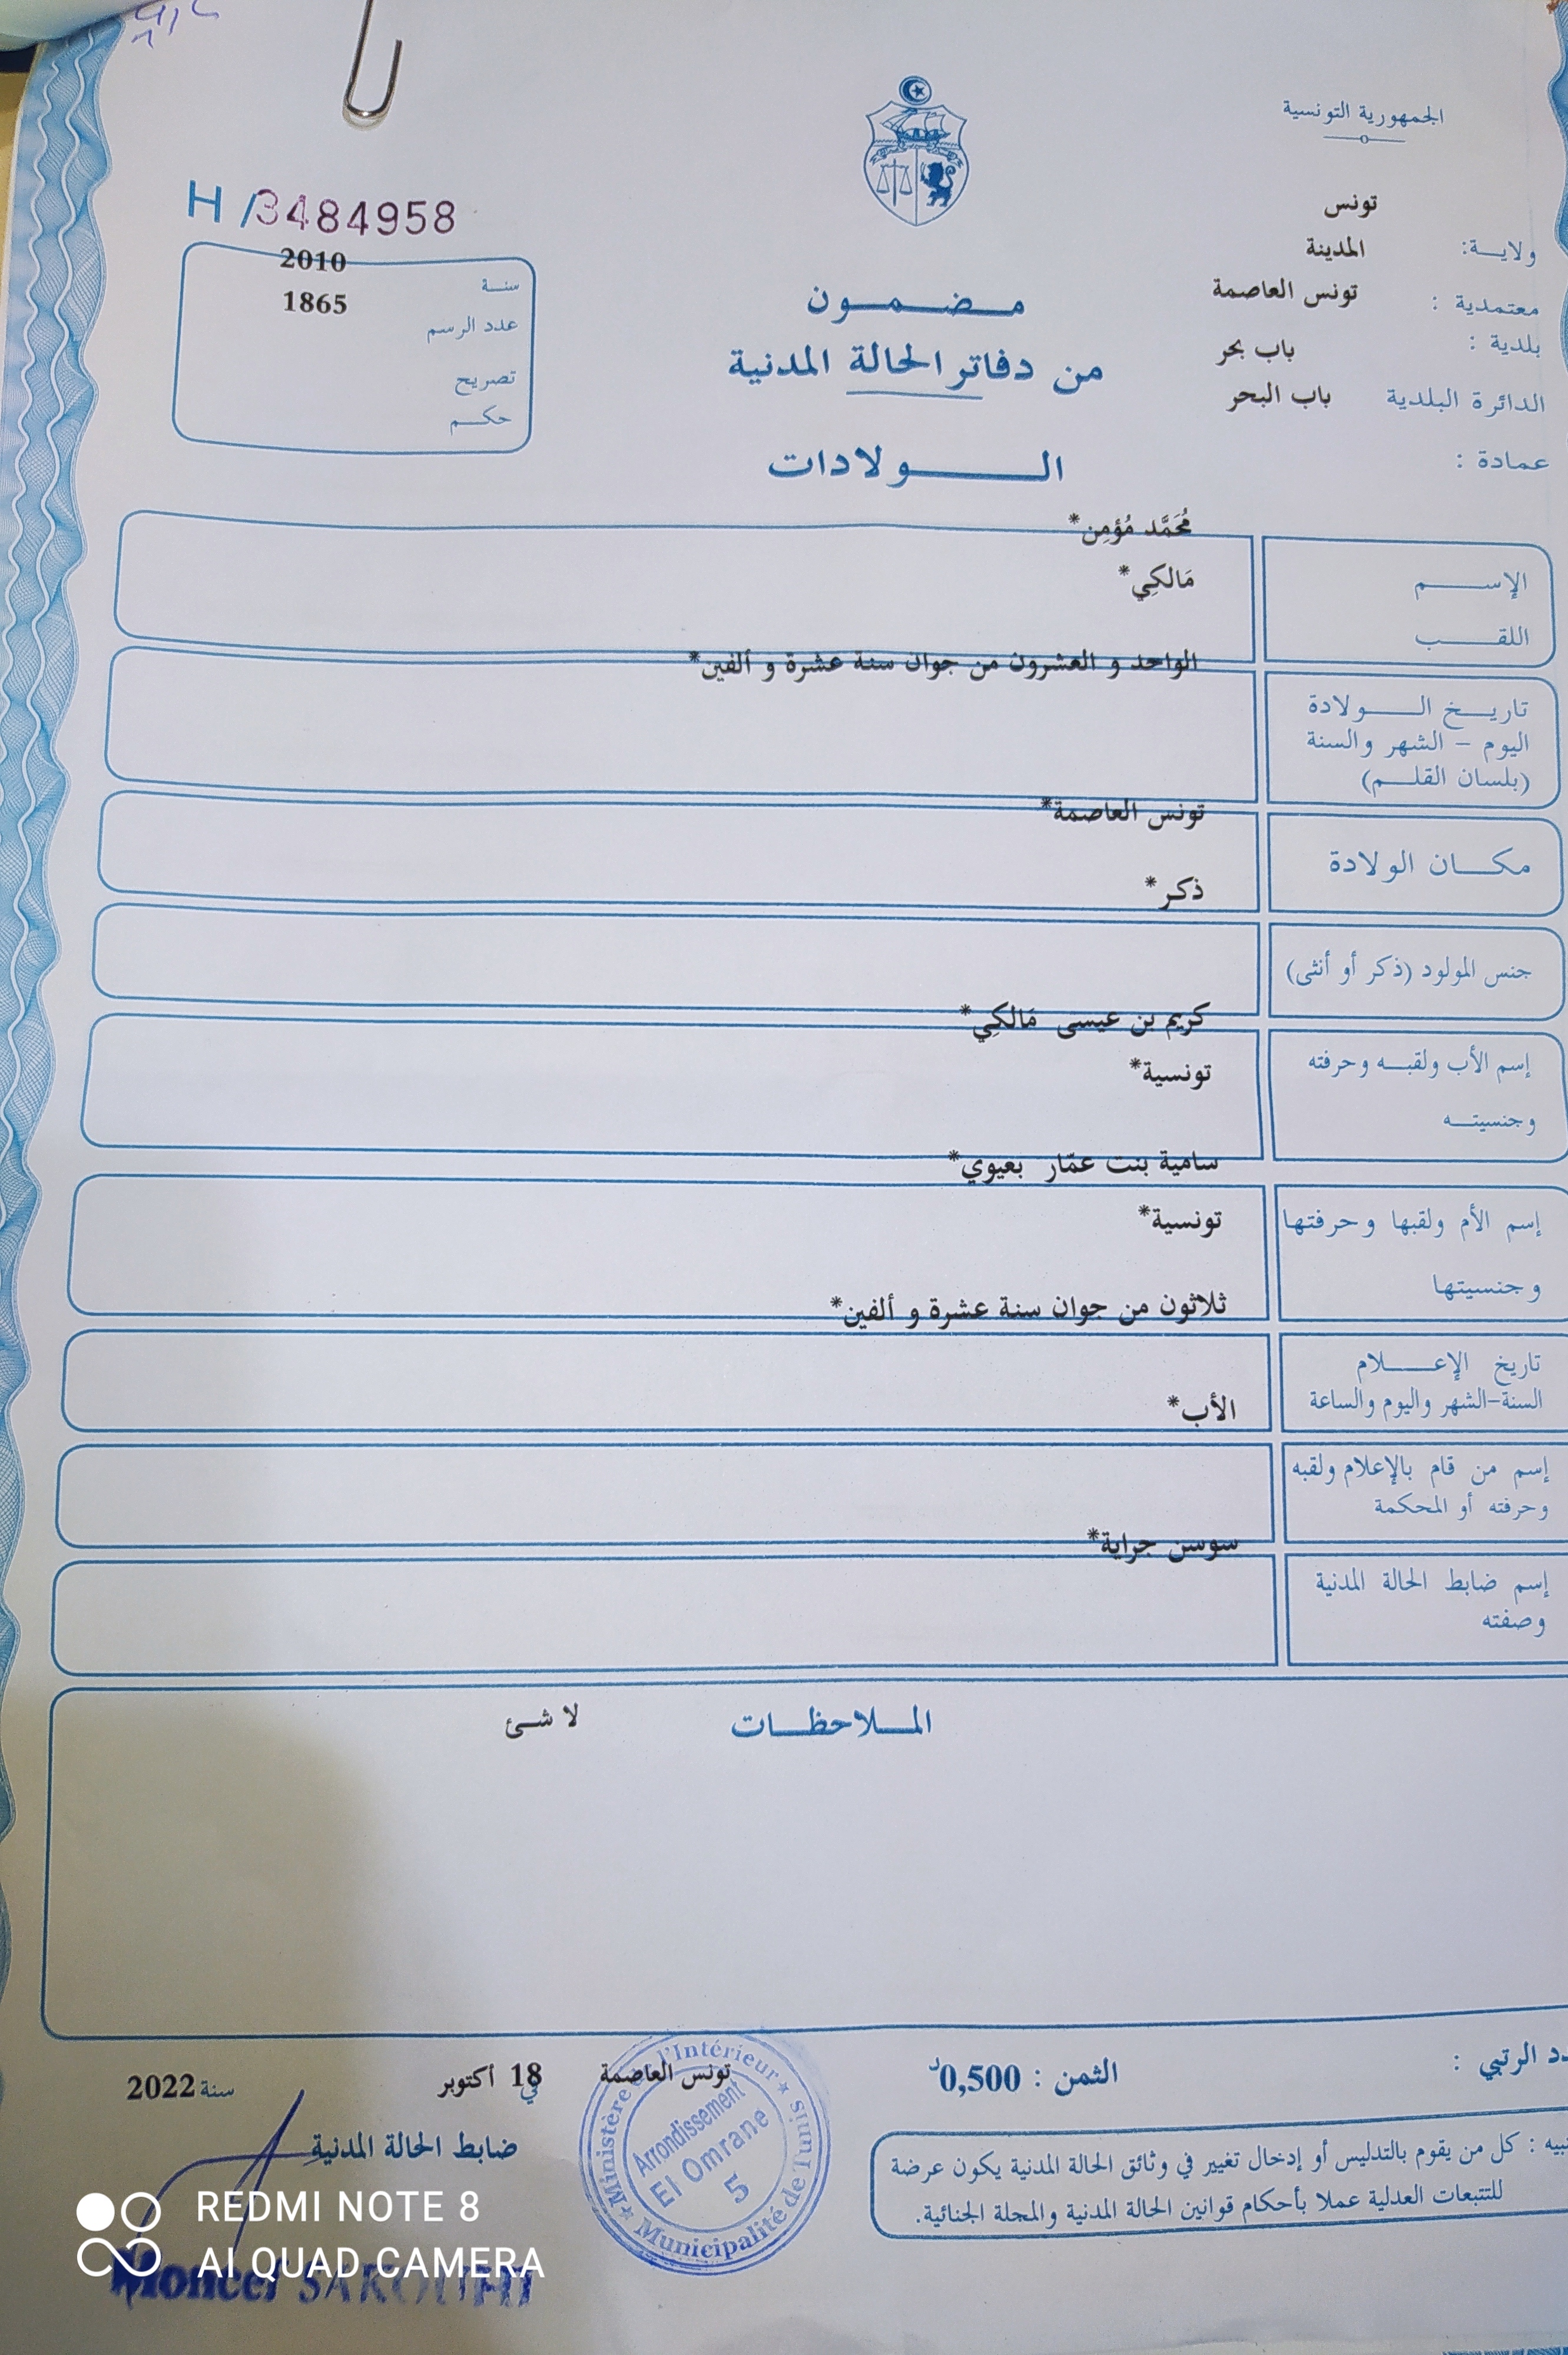 الجمهورية التونسية
H/3484958
تونس
ولايـة: المدينة
معتمدية : تونس العاصمة
بلدية : باب بحر
الدائرة البلدية باب البحر
عمادة :
2010
سنة
1865
عدد الرسم
تصريح
حكم
مضمون
من دفاتر الحالة المدنية
الولادات
مُحَمَّد مُؤمِن*
الإسم
مَالكِي*
اللقب
الواحد و العشرون من جوان سنة عشرة و ألفين*
تاريخ الولادة
اليوم – الشهر والسنة
(بلسان القلم)
تونس العاصمة*
مكان الولادة
ذكر*
جنس المولود (ذكر أو أنثى)
كريم بن عيسى مَالكِي*
إسم الأب ولقبه وحرفته
تونسية*
وجنسيته
سامية بنت عمّار بعيوي*
إسم الأم ولقبها وحرفتها
تونسية*
وجنسيتها
ثلاثون من جوان سنة عشرة و ألفين*
تاريخ الإعلام
السنة-الشهر واليوم والساعة
الأب*
إسم من قام بالإعلام ولقبه
وحرفته أو المحكمة
سوسن جراية*
إسم ضابط الحالة المدنية
وصفته
الملاحظات لا شئ
دد الرتبي :
الثمن : 0,500د
تونس العاصمة في 18 أكتوبر سنة 2022
ضابط الحالة المدنية
نبيه : كل من يقوم بالتدليس أو إدخال تغيير في وثائق الحالة المدنية يكون عرضة
للتتبعات العدلية عملا بأحكام قوانين الحالة المدنية والمجلة الجنائية.
Ministère l'Intérieur
Arrondissement
El Omrane
5
Municipalité de Tunis
REDMI NOTE 8
AI QUAD CAMERA
Moncef